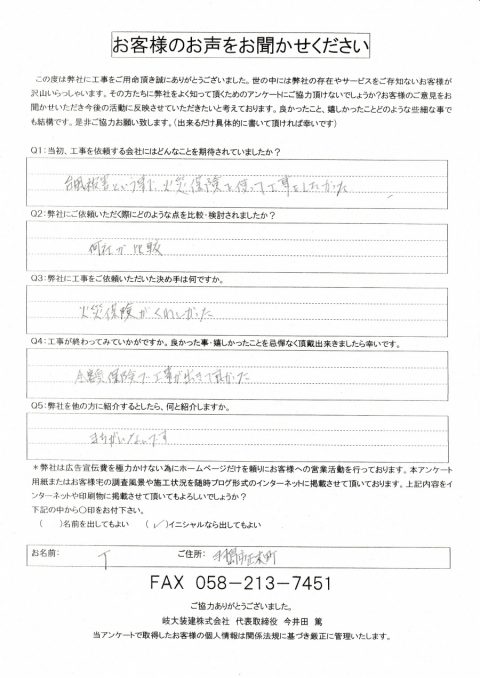 お客様のお声をお聞かせください
この度は弊社に工事をご用命頂き誠にありがとうございました。世の中には弊社の存在やサービスをご存知ないお客様が
沢山いらっしゃいます。その方たちに弊社をよく知って頂くためのアンケートにご協力頂けないでしょうか?お客様のご意見をお
聞かせいただき今後の活動に反映させていただきたいと考えております。良かったこと、嬉しかったことどのような些細な事で
も結構です。是非ご協力お願い致します。（出来るだけ具体的に書いて頂ければ幸いです）
Q1：当初、工事を依頼する会社にはどんなことを期待されていましたか?
台風被害という事で、火災保険を使って工事をしたかった
Q2：弊社にご依頼いただく際にどのような点を比較・検討されましたか?
何社か比較
Q3：弊社に工事をご依頼いただいた決め手は何ですか。
火災保険がくわしかった
Q4：工事が終わってみていかがですか。良かった事・嬉しかったことを忌憚なく頂戴出来きましたら幸いです。
全額保険で工事が出来て良かった
Q5：弊社を他の方に紹介するとしたら、何と紹介しますか。
まちがいないです
＊弊社は広告宣伝費を極力かけない為にホームページだけを頼りにお客様への営業活動を行っております。本アンケート
用紙またはお客様宅の調査風景や施工状況を随時ブログ形式のインターネットに掲載させて頂いております。上記内容をイ
ンターネットや印刷物に掲載させて頂いてもよろしいでしょうか?
下記の中から○印をお付下さい。
（　）名前を出してもよい　（✓）イニシャルなら出してもよい
お名前： T ご住所： 羽島市正木町
FAX 058－213－7451
ご協力ありがとうございました。
岐大装建株式会社 代表取締役 今井田 篤
当アンケートで取得したお客様の個人情報は関係法規に基づき厳正に管理いたします。